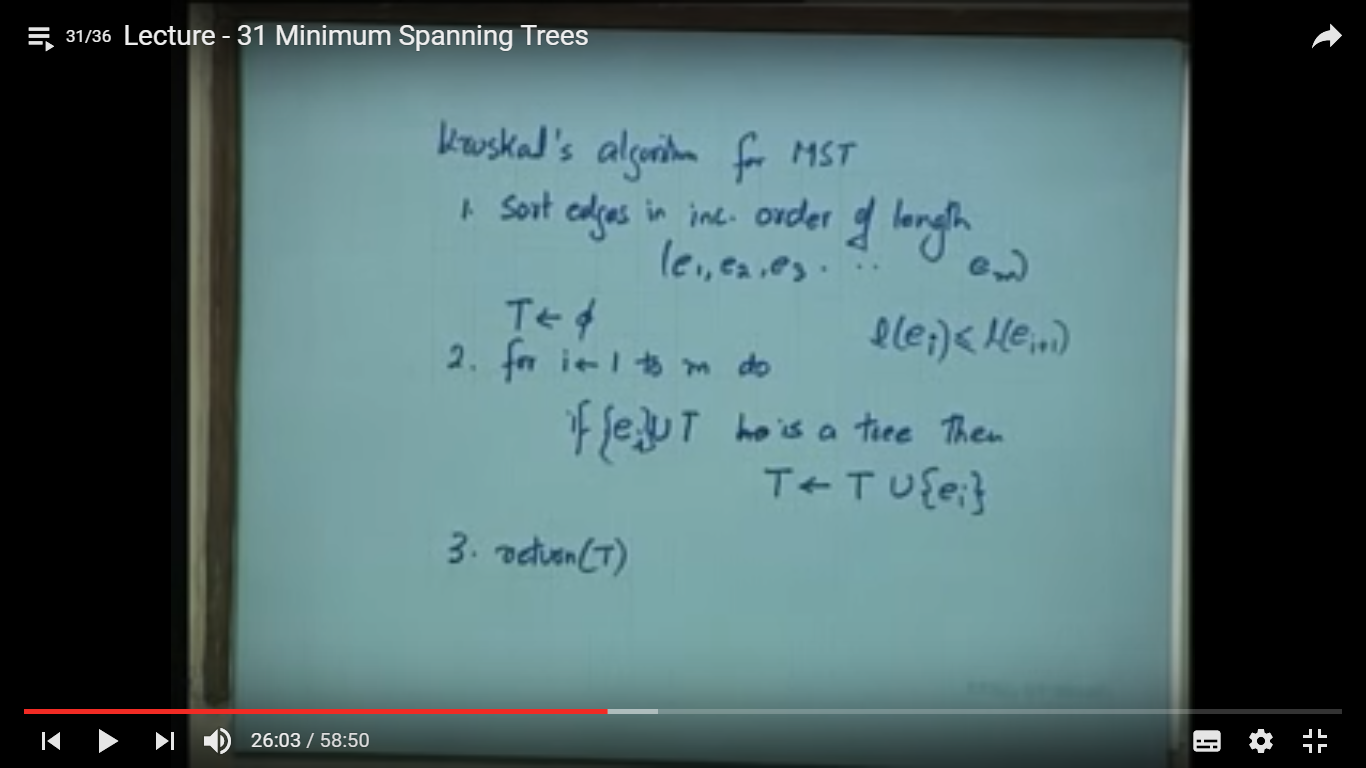 31/36 Lecture - 31 Minimum Spanning Trees
Kruskal's algorithm for MST
1. Sort edges in inc. order of length
(e₁, e₂, e₃ . .. eₘ)
T ← φ
l(eᵢ) ≤ l(eᵢ₊₁)
2. for i ← 1 to m do
if {eᵢ} ∪ T is a tree then
T ← T ∪ {eᵢ}
3. return(T)
26:03 / 58:50